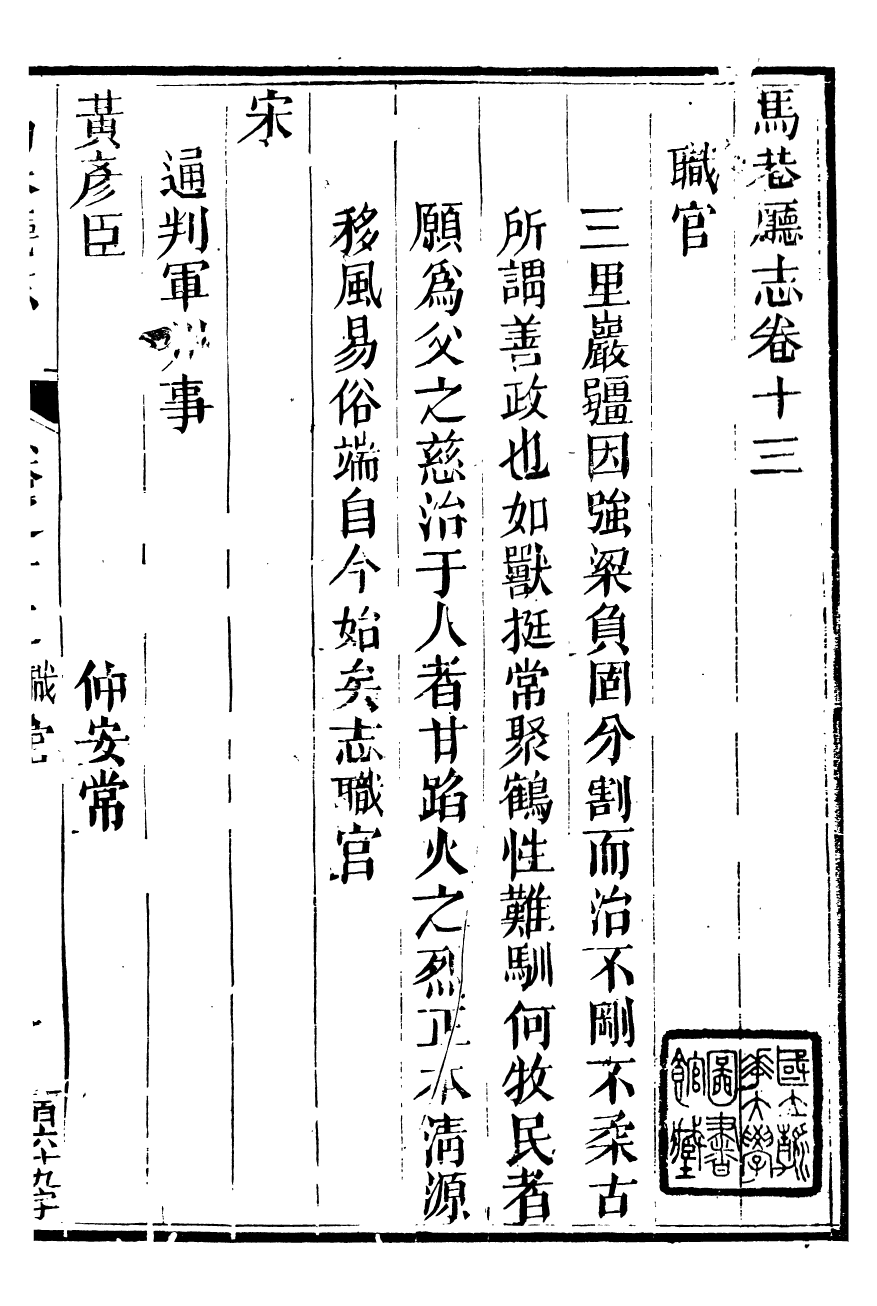 馬巷廳志卷十三
職官
三里巖疆因強梁負固分割而治不剛不柔古
所謂善政也如獸挺常聚鶴性難馴何牧民者
願為父之慈治于人者甘蹈火之烈正本清源
移風易俗端自今始矣志職官
宋
通判軍州事
黃彥臣 仲安常
職官
百六十九字
國立
大學
圖書
館藏